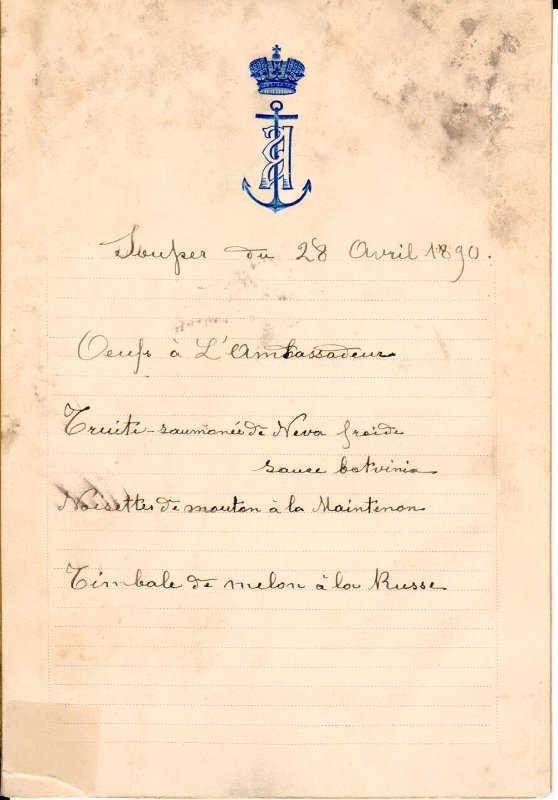 Souper du 28 Avril 1890.
Oeufs à L'Ambassadeur
Truite-saumonée de Neva froide
sauce botvinia
Noisettes de mouton à la Maintenon
Timbale de melon à la Russe